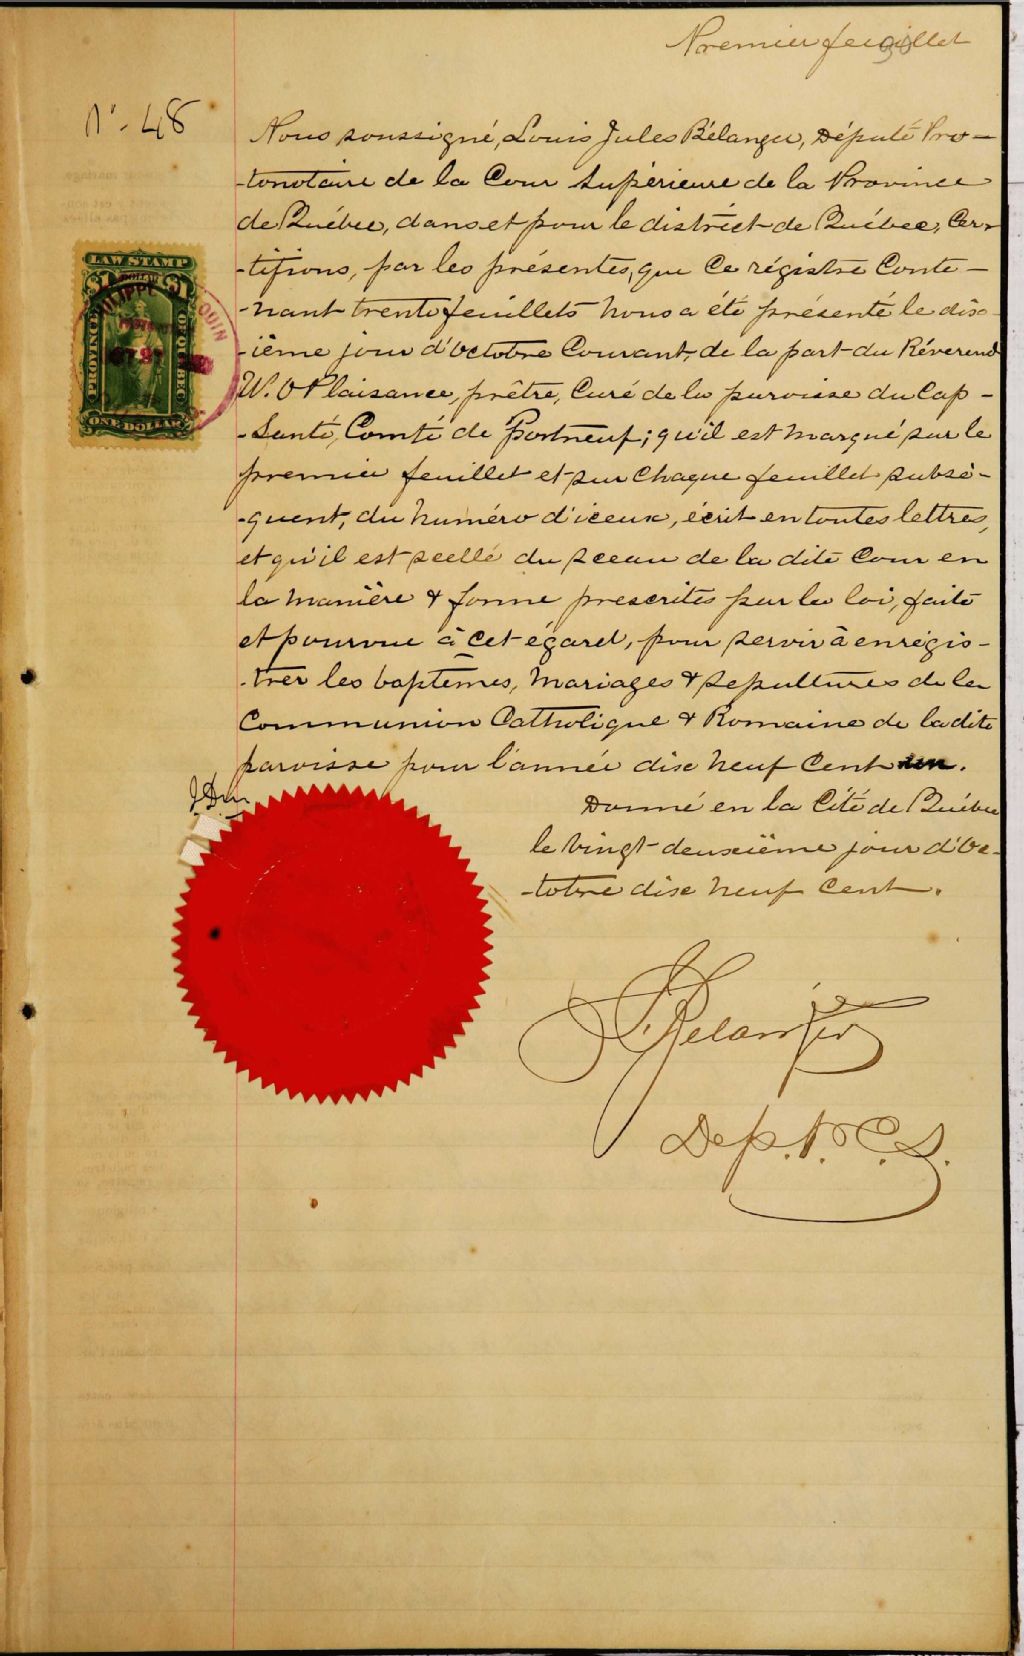 Premier feuillet
No. 48
Nous soussigné, Louis Jules Bélanger, Député Pro-
-tonotaire de la Cour Supérieure de la Province
de Québec, dans et pour le district de Québec, Cer-
-tifions, par les présentes, que ce régistre Conte-
-nant trente feuillets nous a été présenté le dix-
-ième jour d'Octobre Courant, de la part du Révérend
W. O Plaisance, prêtre, Curé de la paroisse du Cap-
-Santé, Comté de Portneuf; qu'il est marqué sur le
premier feuillet et sur chaque feuillet subsé-
-quent, du numéro d'iceux, écrit en toutes lettres,
et qu'il est scellé du sceau de la dite Cour en
la manière & forme prescrites par la loi, faite
et pourvue à cet égard, pour servir à enrégis-
-trer les baptêmes, mariages & sepultures de la
Communion Catholique & Romaine de la dite
paroisse pour l'année dix neuf Cent un.
Donné en la Cité de Québec
le vingt-deuxième jour d'Oc-
-tobre dix neuf Cent.
Belanger
Dep. P. C. S.
LAW STAMP
$1 DOLLAR $1
PROVINCE OF QUEBEC
ONE DOLLAR